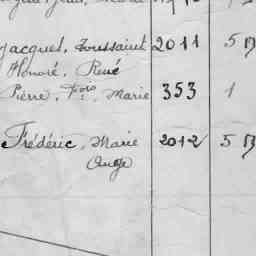 Jacques, Toussaint 2011 5 B
Honoré, René
Pierre, fçois, Marie 353 1
Frédéric, Marie 2012 5 B
Ange